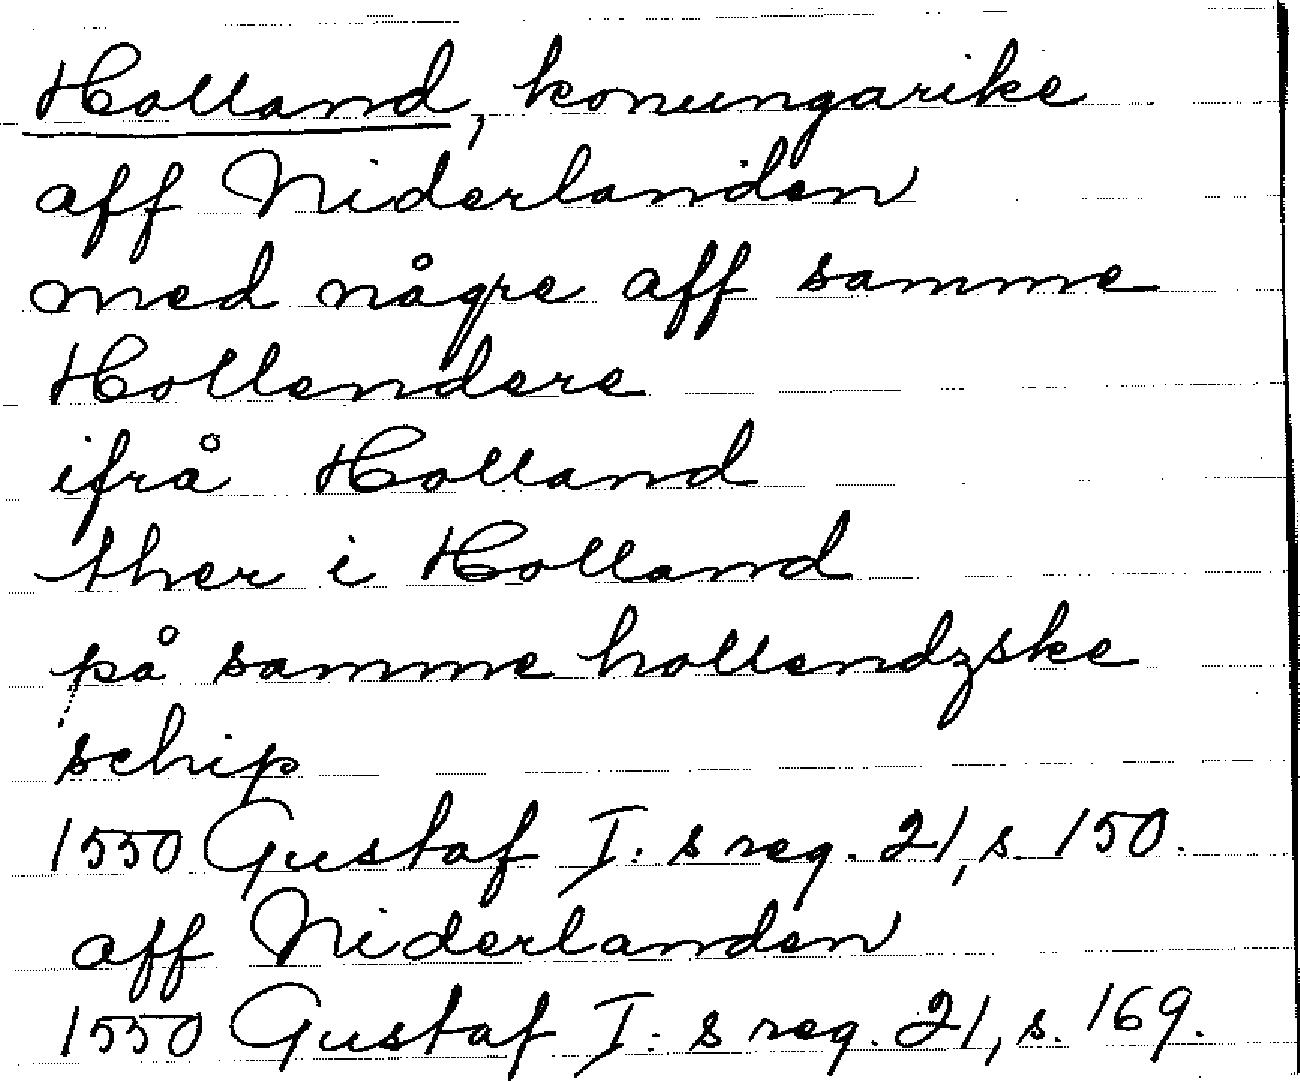 Holland, konungarike
aff Niderlanden
med någre aff samme
Hollendere
ifrå Holland
ther i Holland
på samme hollendzske
schip
1550 Gustaf I: s reg. 21, s. 150.
aff Niderlanden
1550 Gustaf I: s reg. 21, s. 169.